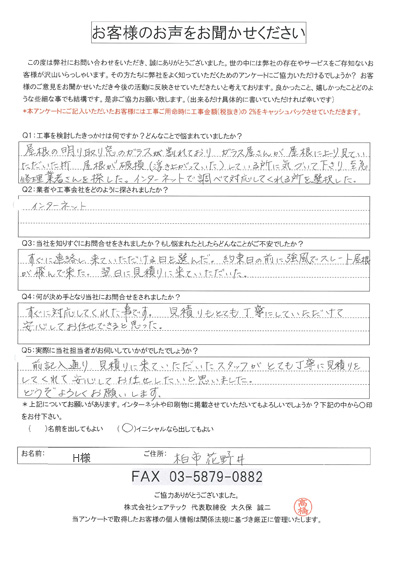 お客様のお声をお聞かせください
この度は弊社にお問い合わせをいただき、誠にありがとうございました。世の中には弊社の存在やサービスをご存知ないお
客様が沢山いらっしゃいます。その方たちに弊社をよく知っていただくためのアンケートにご協力いただけるでしょうか? お客
様のご意見をお聞かせいただき今後の活動に反映させていただきたいと考えております。良かったこと、嬉しかったことどのよ
うな些細な事でも結構です。是非ご協力お願い致します。（出来るだけ具体的に書いていただければ幸いです）
*本アンケートにご記入いただいたお客様には工事ご用命頂に工事金額(税抜き)の2%をキャッシュバックさせていただきます。
Q1:工事を検討したきっかけは何ですか?どんなことで悩まれていましたか?
屋根の明り取り窓のガラスが割れており ガラス屋さんが屋根に上り見てい
ただいた所 屋根が破損(浮き上がっていた)している所に気づいて下さり 至急
修理業者さんを探した。インターネットで調べて対応してくれる所を選択した。
Q2:業者や工事会社をどのように探されましたか?
インターネット
Q3:当社を知りすぐにお問合せをされましたか?もし悩まれたとしたらどんなことがご不安でしたか?
すぐに連絡し来ていただける日を選んだ。約束日の前に強風でスレート屋根
が飛んで来た。翌日に見積りに来ていただいた。
Q4:何が決め手となり当社にお問合せをされましたか?
すぐに対応してくれた事です。見積りもとても丁寧にしていただけて
安心してお任せできると思った。
Q5:実際に当社担当者がお伺いしていかがでしたでしょうか?
前記入通り 見積りに来ていただいたスタッフがとても丁寧に見積りを
してくれて安心してお任せしたいと思いました。
どうぞよろしくお願いします。
*上記についてお願いがあります。インターネットや印刷物に掲載させていただいてもよろしいでしょうか?下記の中から○印
をお付下さい。
( )名前を出してもよい (○)イニシャルなら出してもよい
お名前: H様 ご住所: 柏市花野井
FAX 03-5879-0882
ご協力ありがとうございました。
株式会社シェアテック 代表取締役 大久保 誠二
高橋
当アンケートで取得したお客様の個人情報は関係法規に基づき厳正に管理いたします。